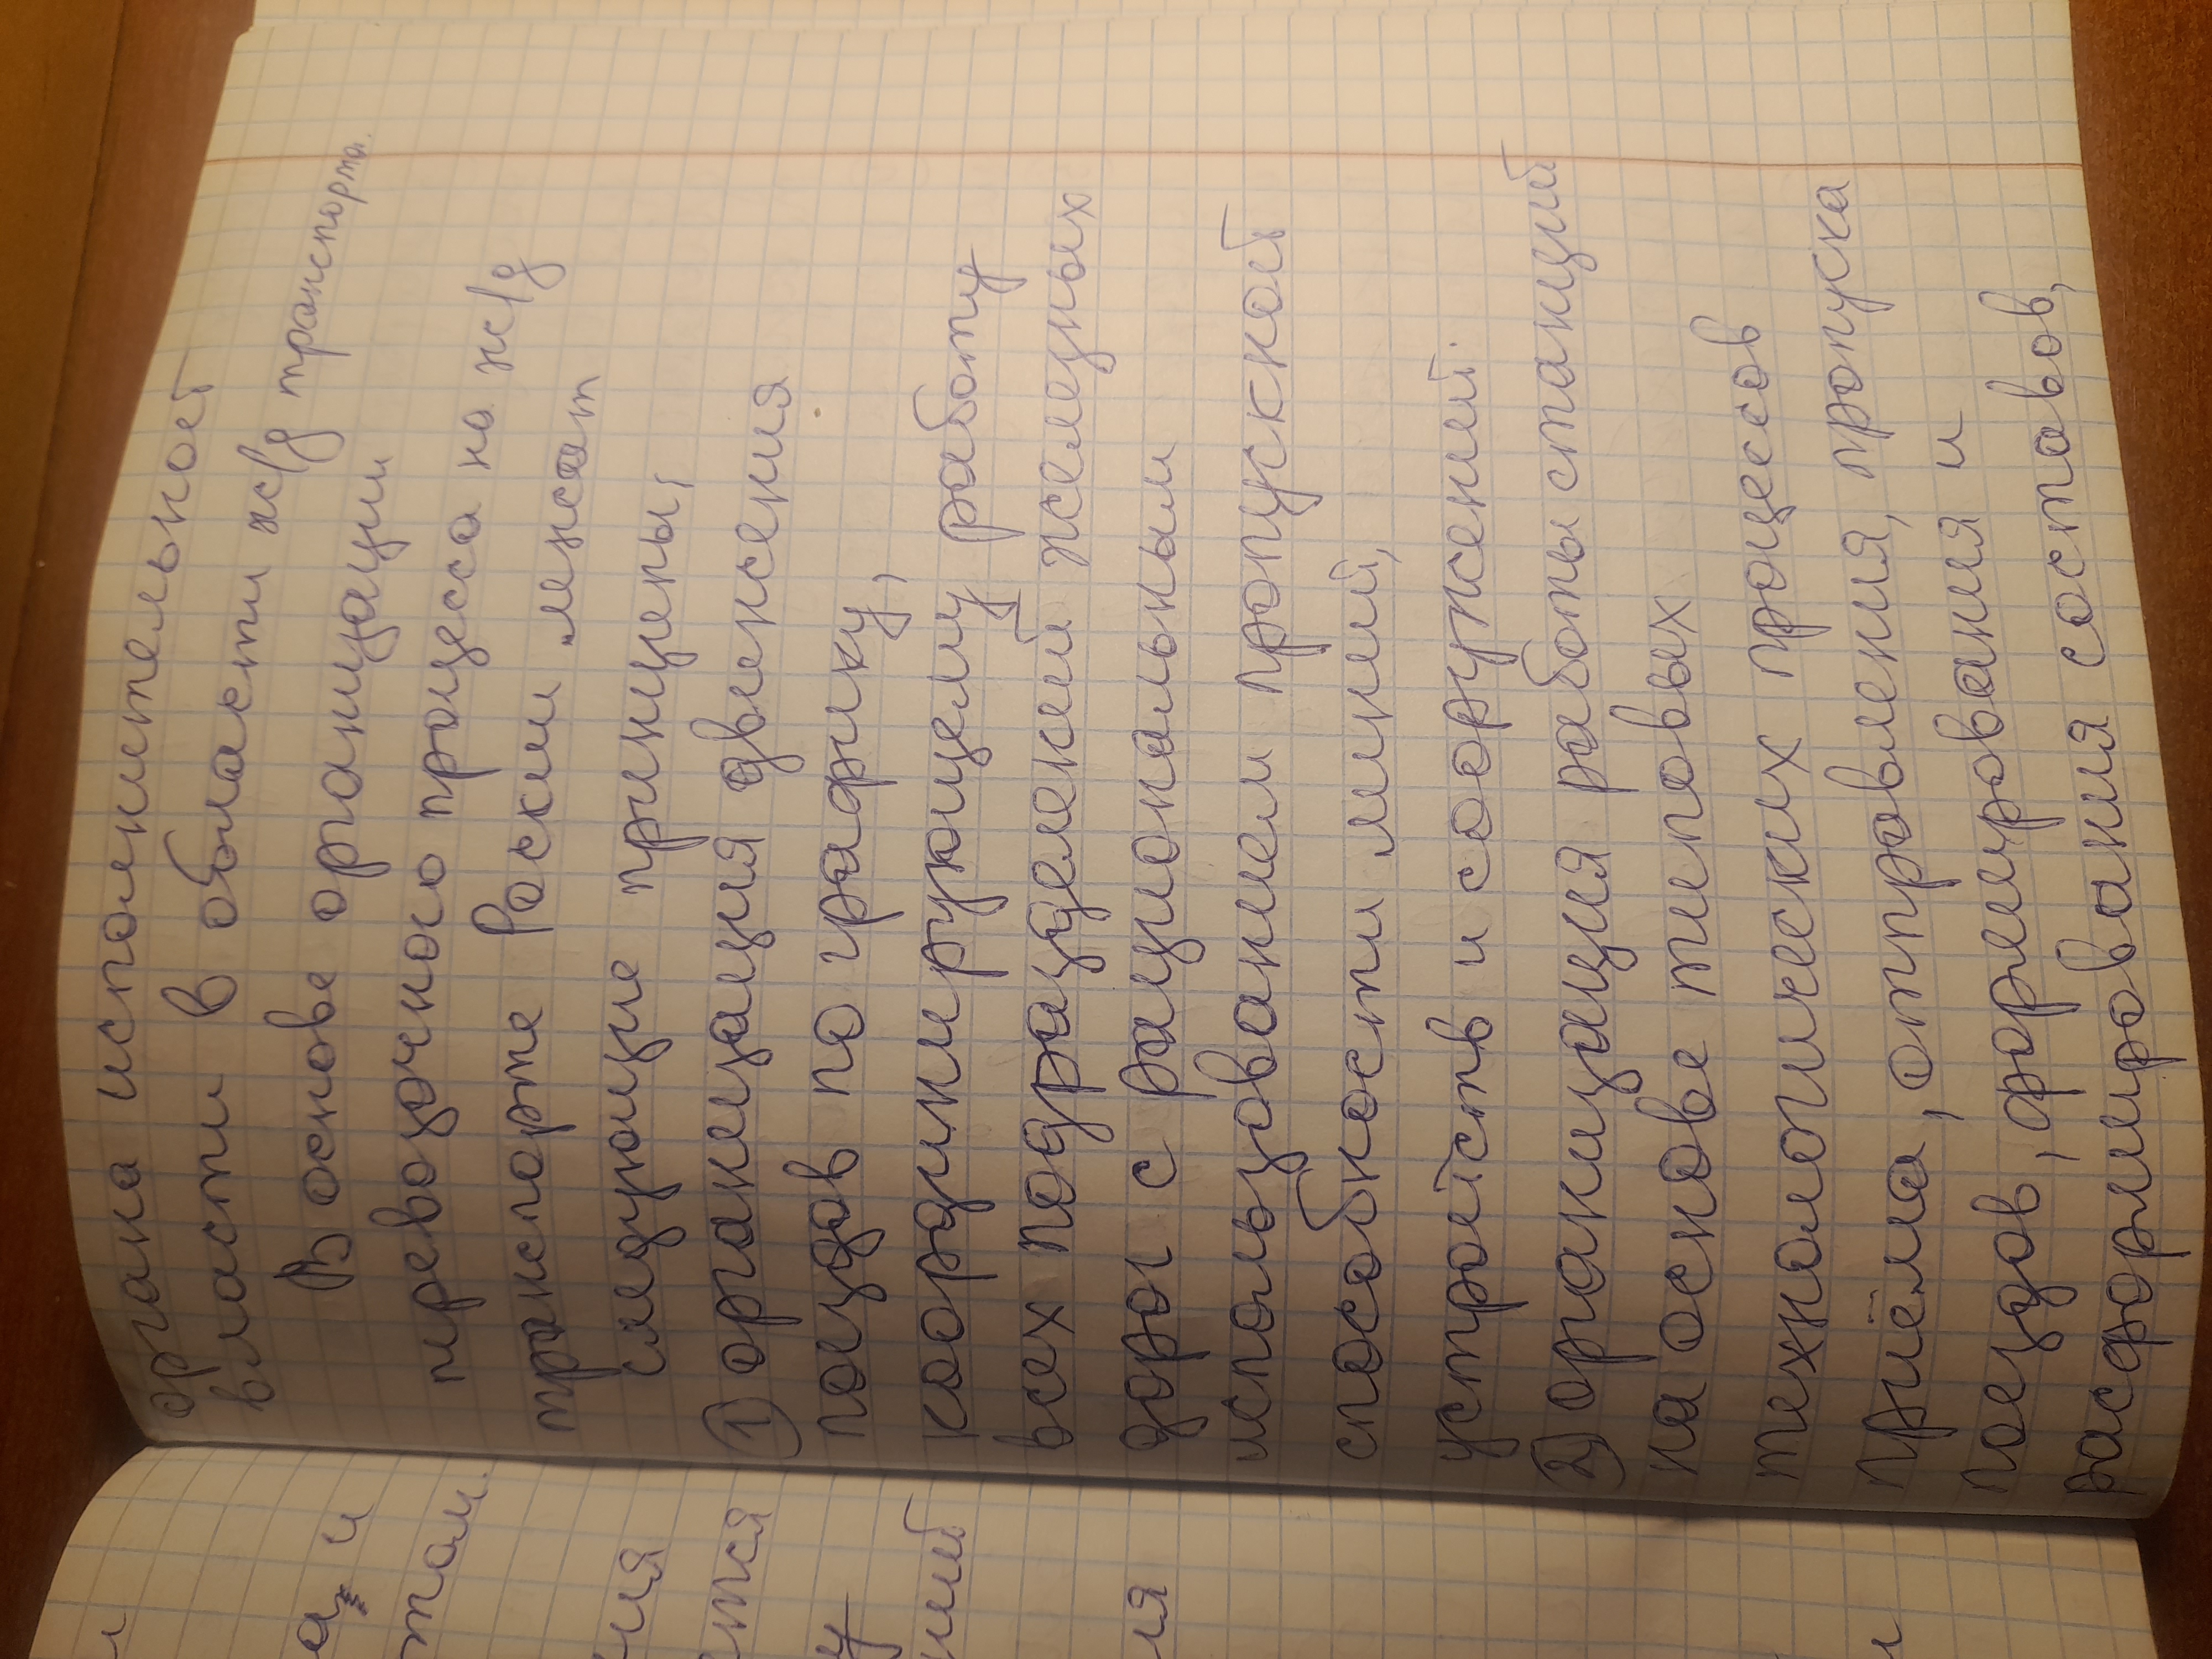 органа исполнительной
власти в области ж/д транспорта.
В основе организации
первозочного процесса на ж/д
транспорте Росии лежат
следующие принципы;
1) организация движения
поездов по графику,
координирующему работу
всех подразделений железных
дорог с рациональным
использованием пропускной
способности линий,
устройств и сооружений.
2) организация работы станций
на основе типовых
технологических процессов
приёма, отправления, пропуска
поездов, формирования и
расформирования составов,